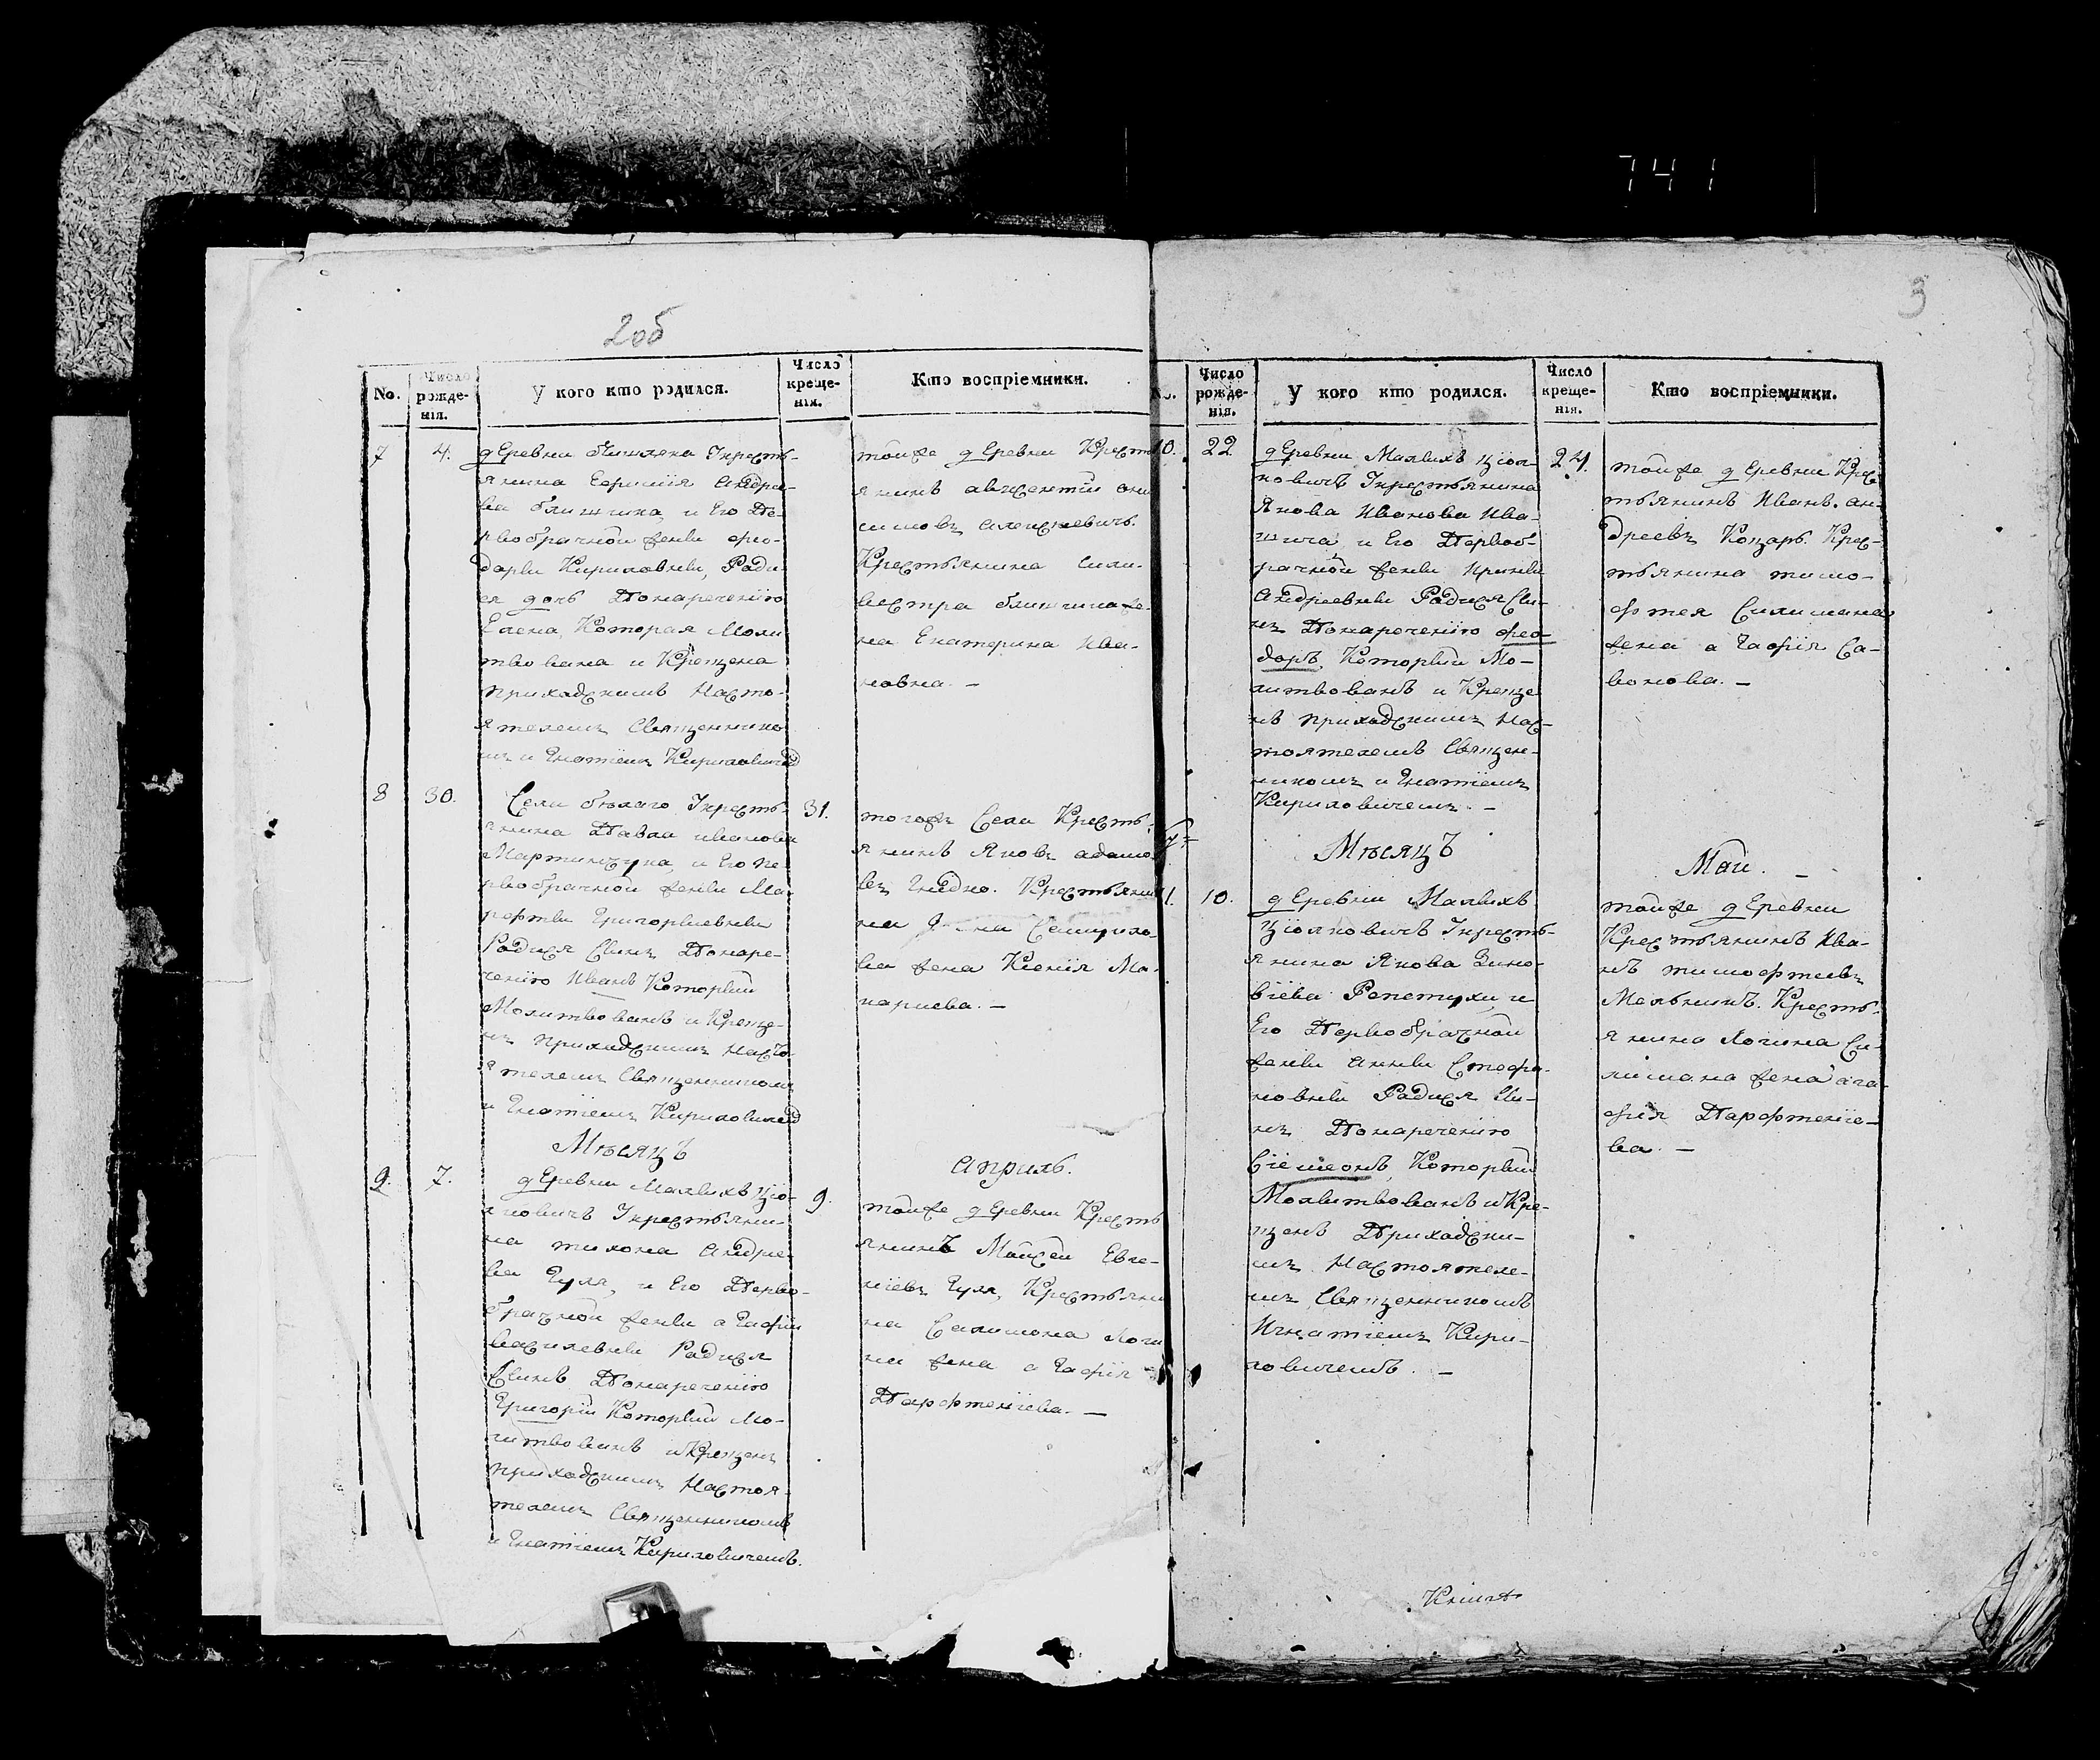 741
2об
No.
Число рожде-нія.
У кого кто родился.
Число креще-нія.
Кто воспріемники.
7
4.
деревни
Кресть-
янина
Андре-
ва
и Его Пе-
рвобрачной жены Фео-
доры Кириловны, Роди
ся дочь Понареченію
Елена, Которая Моли
твована и Крещена
приходскимъ Насто-
ятелемъ Священнико
мъ Игнатіемъ Кириловичем
тойже деревни Крестъ
янинъ авксентій они
симовъ Алексиевичъ.
Крестьянина Сили-
вестра Климчика же-
на Екатерина Ива-
новна. —
8
30.
Села бѣлаго Кресть-
янина Павла иванова
Мартинчука, и Его пе-
рвобрачной жены Ма-
рфты Григориевны
Родися Сынъ Понаре-
ченію Иванъ Который
Молитвованъ и Креще-
нъ приходскимъ Насто
ятелемъ Священникомъ
Игнатіемъ Кириловичем
31.
тогожъ Села Кресть-
янинъ Яковъ адамо
въ Гнидко. Крестьяни
на
ва жена Ксенія Ма-
кариева. —
Мѣсяцъ
Априль.
9.
7.
деревни Малыхъ Ціо-
лковичъ Крестьяни-
на тихона Андре-
ва Гуля, и Его Перво-
брачной жены агафіи
василевны Родися
Сынъ Понареченію
Григорій Который Мо-
литвованъ и Крещенъ
приходскимъ Настоя-
телемъ Священникомъ
Игнатіемъ Кириловичемъ.
9.
тойже деревни Кресть
янинъ Мойсей Евге-
ніевъ Гуля, Крестьяни
на Салимона Логи
на жена агафія
Парфтеніева. —
3
No.
Число рожде-нія.
У кого кто родился.
Число креще-нія.
Кто воспріемники.
10.
22.
деревни Малыхъ Ціол-
ковичъ Крестьянина
Якова Иванова Ива-
шича, и Его Первоб-
рачной жены Ирины
Андріевны Родися Си-
нъ Понареченію Фео-
доръ, Который Мо-
литвованъ и Креще
нъ приходскимъ Нас-
тоятелемъ Священ-
никомъ Игнатіемъ
Кириловичемъ. —
24.
тойже деревни Крес
тьянинъ Иванъ. Ан-
дреевъ Коцаръ. Крес-
тьянина тимо-
фтея Силимана
жена агафія Са-
вонова. —
Мѣсяцъ
Май. —
11.
10.
деревни Малыхъ
Ціолковичъ Кресть-
янина Якова Зино-
віева Репетухи, и
Его Первобрачной
жены Анны Стефа-
новны Родися Си-
нъ Понареченію
Сіємеонъ, Который
Молитвованъ и Кре-
щенъ Приходски-
мъ Настоятеле-
мъ Священникомъ
Игнатіемъ Кири-
ловичемъ. —
тойже деревни
Крестьянинъ Ива-
нъ тимофтеевъ
Мельникъ. Кресть-
янина Логина Си-
лимана жена ага-
фія Парфтеніе-
ва. —